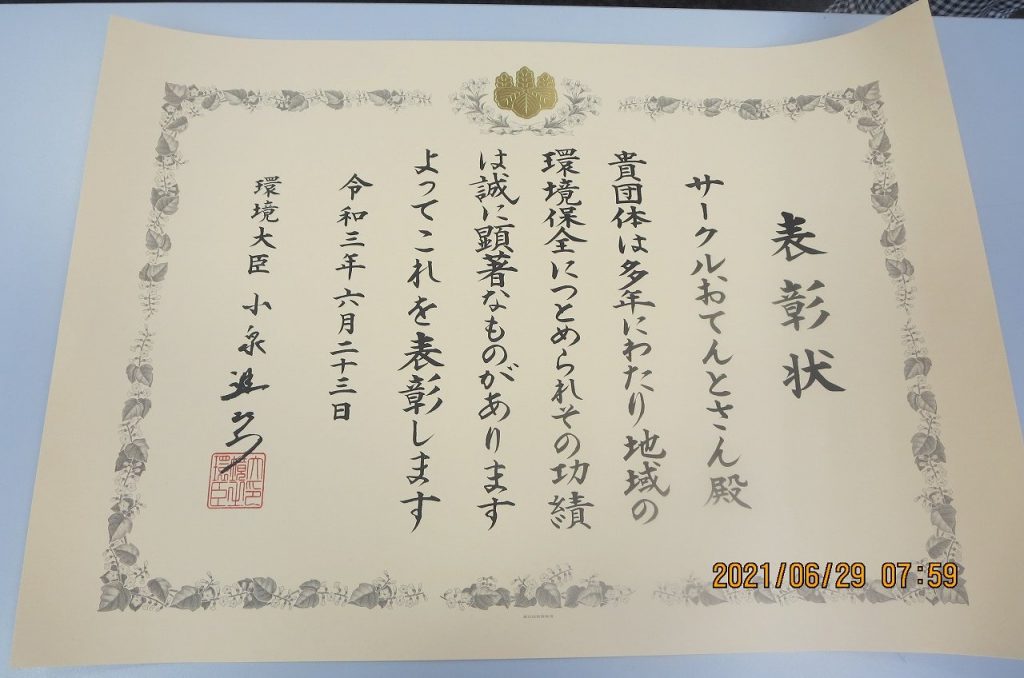 表彰状
サークルおてんとさん殿
貴団体は多年にわたり地域の
環境保全につとめられその功績
は誠に顕著なものがあります
よってこれを表彰します
令和三年六月二十三日
環境大臣 小泉進次郎
2021/06/29 07:59